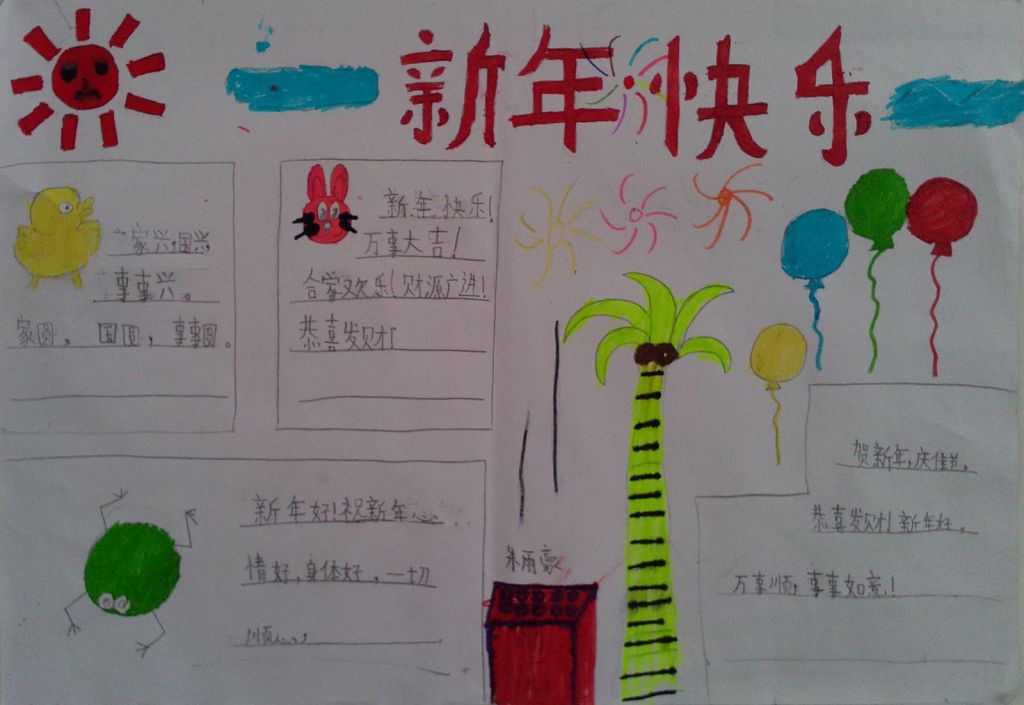 新年快乐
一家兴,国兴
事事兴。
家圆,国圆,事事圆。
新年快乐!
万事大吉!
合家欢乐!财源广进!
恭喜发财!
贺新年,庆佳节。
恭喜发财!新年好。
万事顺,事事如意!
新年好!祝新年心
情好,身体好,一切
顺心
朱雨豪